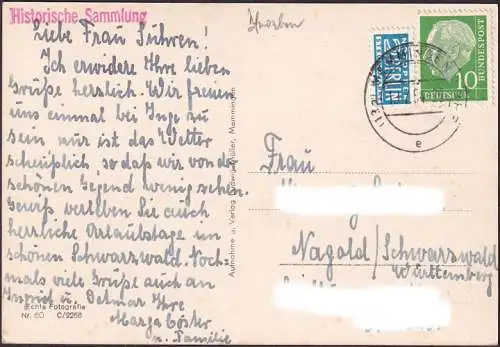 Historische Sammlung
Liebe Frau Führen!
Ich erwidere Ihre lieben
Grüße herzlich. Wir freuen
uns einmal bei Inge zu
sein nur ist das Wetter
scheußlich, so daß wir von der
schönen Gegend wenig sehen.
Gewiß verleben Sie auch
herrliche Urlaubstage im
schönen Schwarzwald. Noch-
mals viele Grüße auch an
Ingrid u. Detmar Ihre
Marga Cöster
u. Familie
Echte Fotografie
Nr. 60 C/9256
Aufnahme u. Verlag Müller, Memmingen
NOTOPFER
2 BERLIN
STEUERMARKE
DEUTSCHE BUNDESPOST
10
e
Frau
Nagold/Schwarzwald
Württemberg